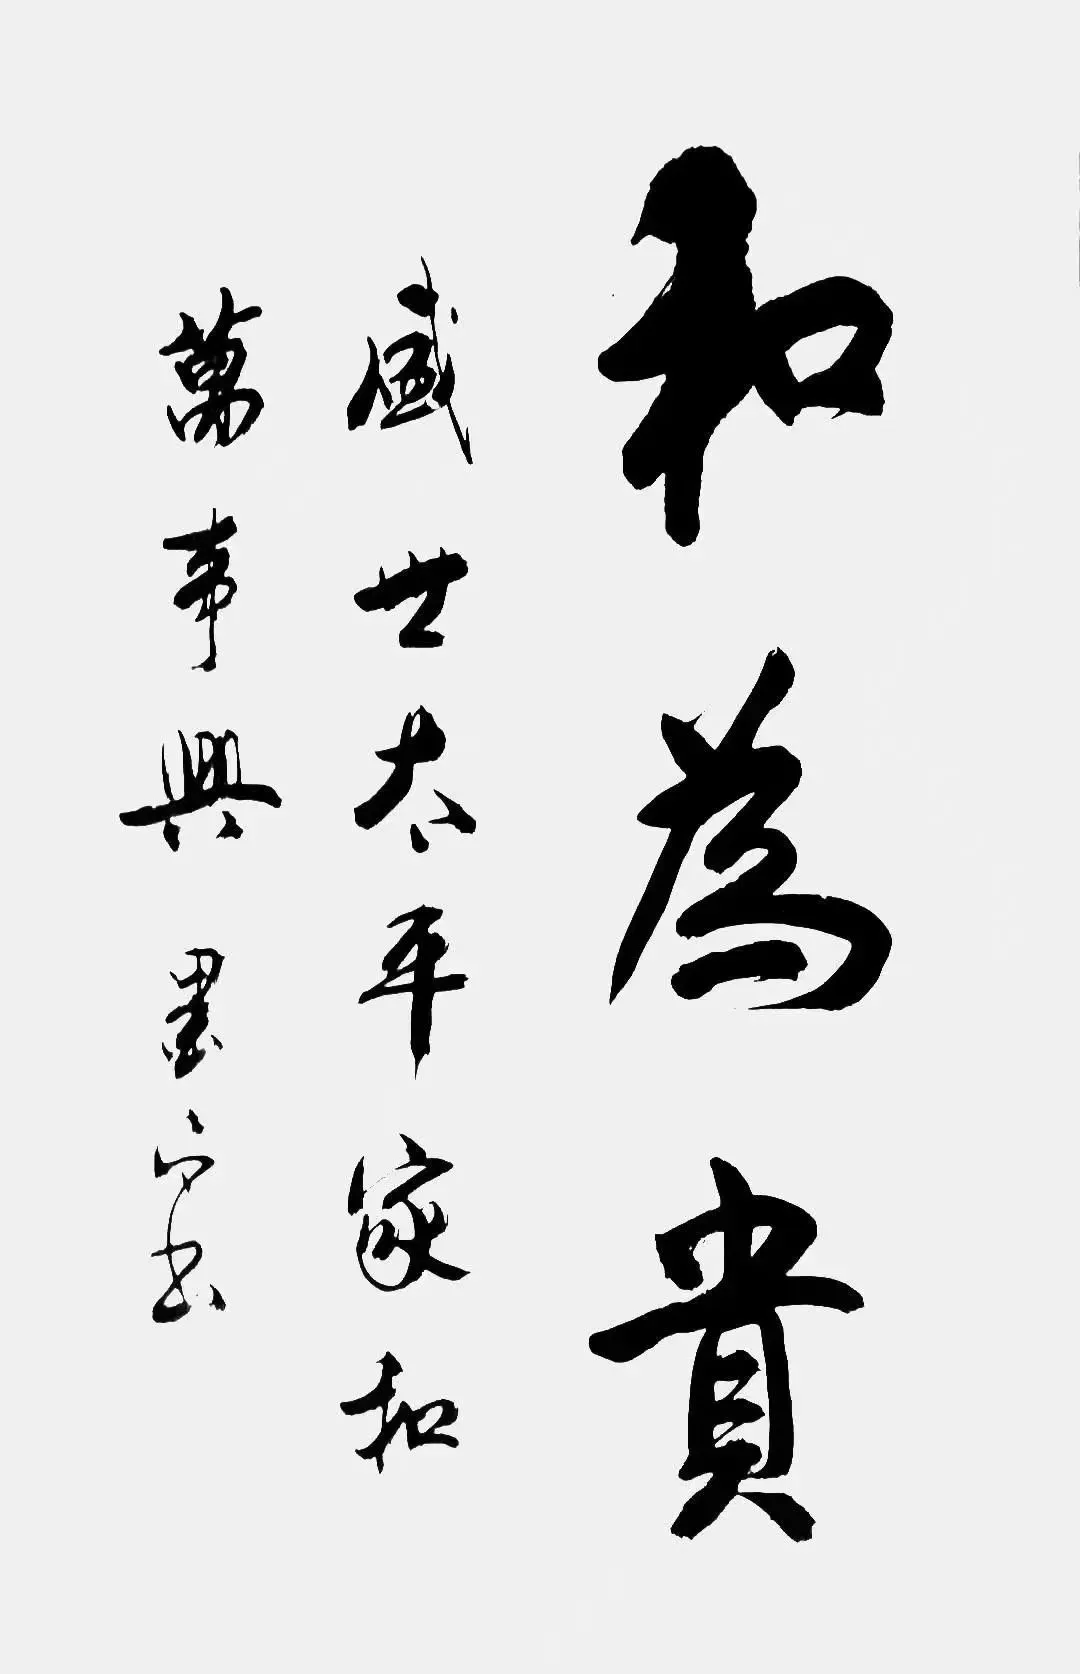 和為貴
盛世太平家和
萬事興 墨宁书